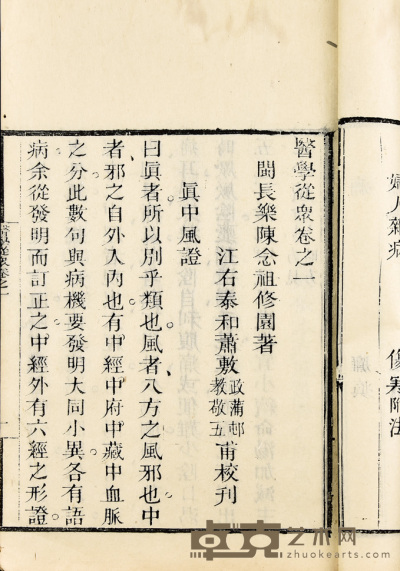 醫學從衆卷之一
閩長樂陳念祖修園著
江右泰和蕭敷政蒲邨教敬五甫校刊
眞中風證
曰眞者所以別乎類也風者八方之風邪也中
者邪之自外入內也有中經中府中藏中血脈
之分此數句與病機要發明大同小異各有語
病余從發明而訂正之中經外有六經之形證
婦人雜病
傷寒附法
卓克艺术网
zhuokearts.com